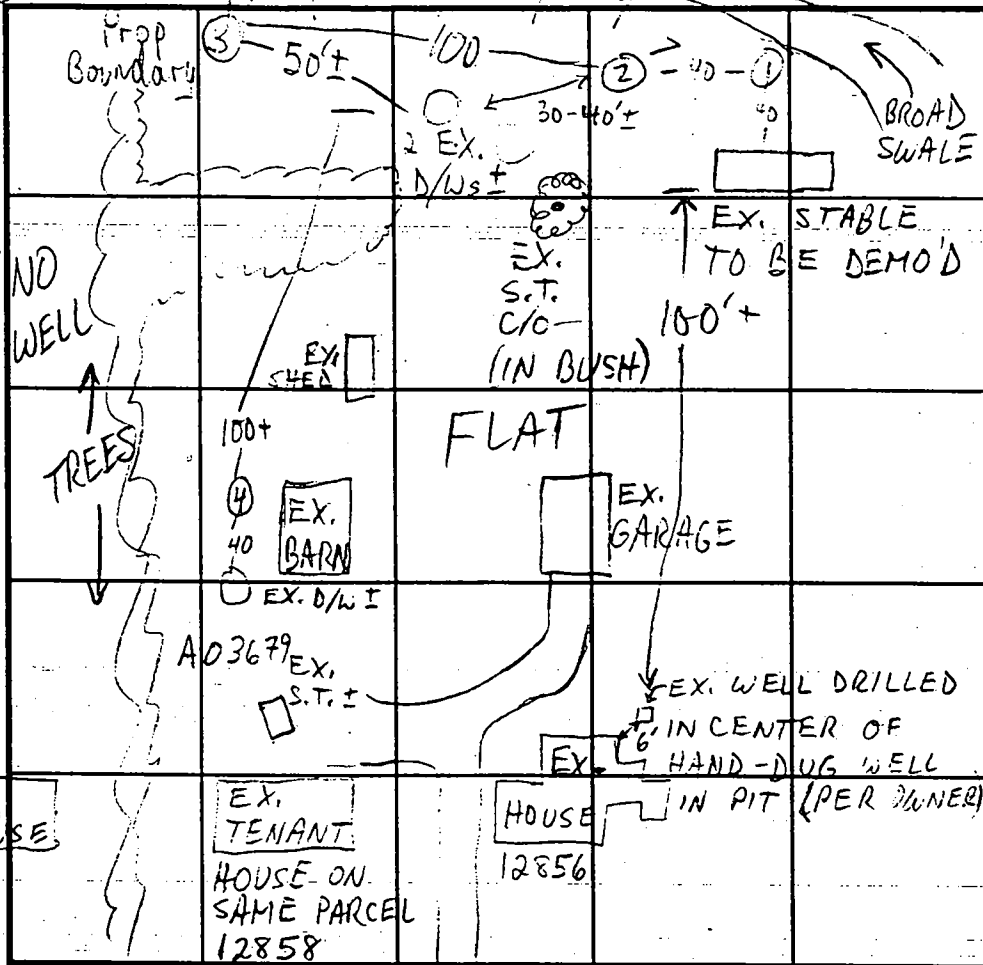 Prop
Boundary
3
50'±
100
2
40
1
40
30-40'±
2 EX.
D/Ws ±
BROAD
SWALE
EX. STABLE
TO BE DEMO'D
100'+
EX.
S.T.
C/O
(IN BUSH)
NO
WELL
TREES
EX.
SHED
FLAT
100+
4
40
EX.
BARN
EX.
GARAGE
EX. D/W ±
A03679
EX.
S.T. ±
EX. WELL DRILLED
IN CENTER OF
HAND-DUG WELL
IN PIT (PER OWNER)
6'
EX.
HOUSE
12856
SE
EX.
TENANT
HOUSE ON
SAME PARCEL
12858